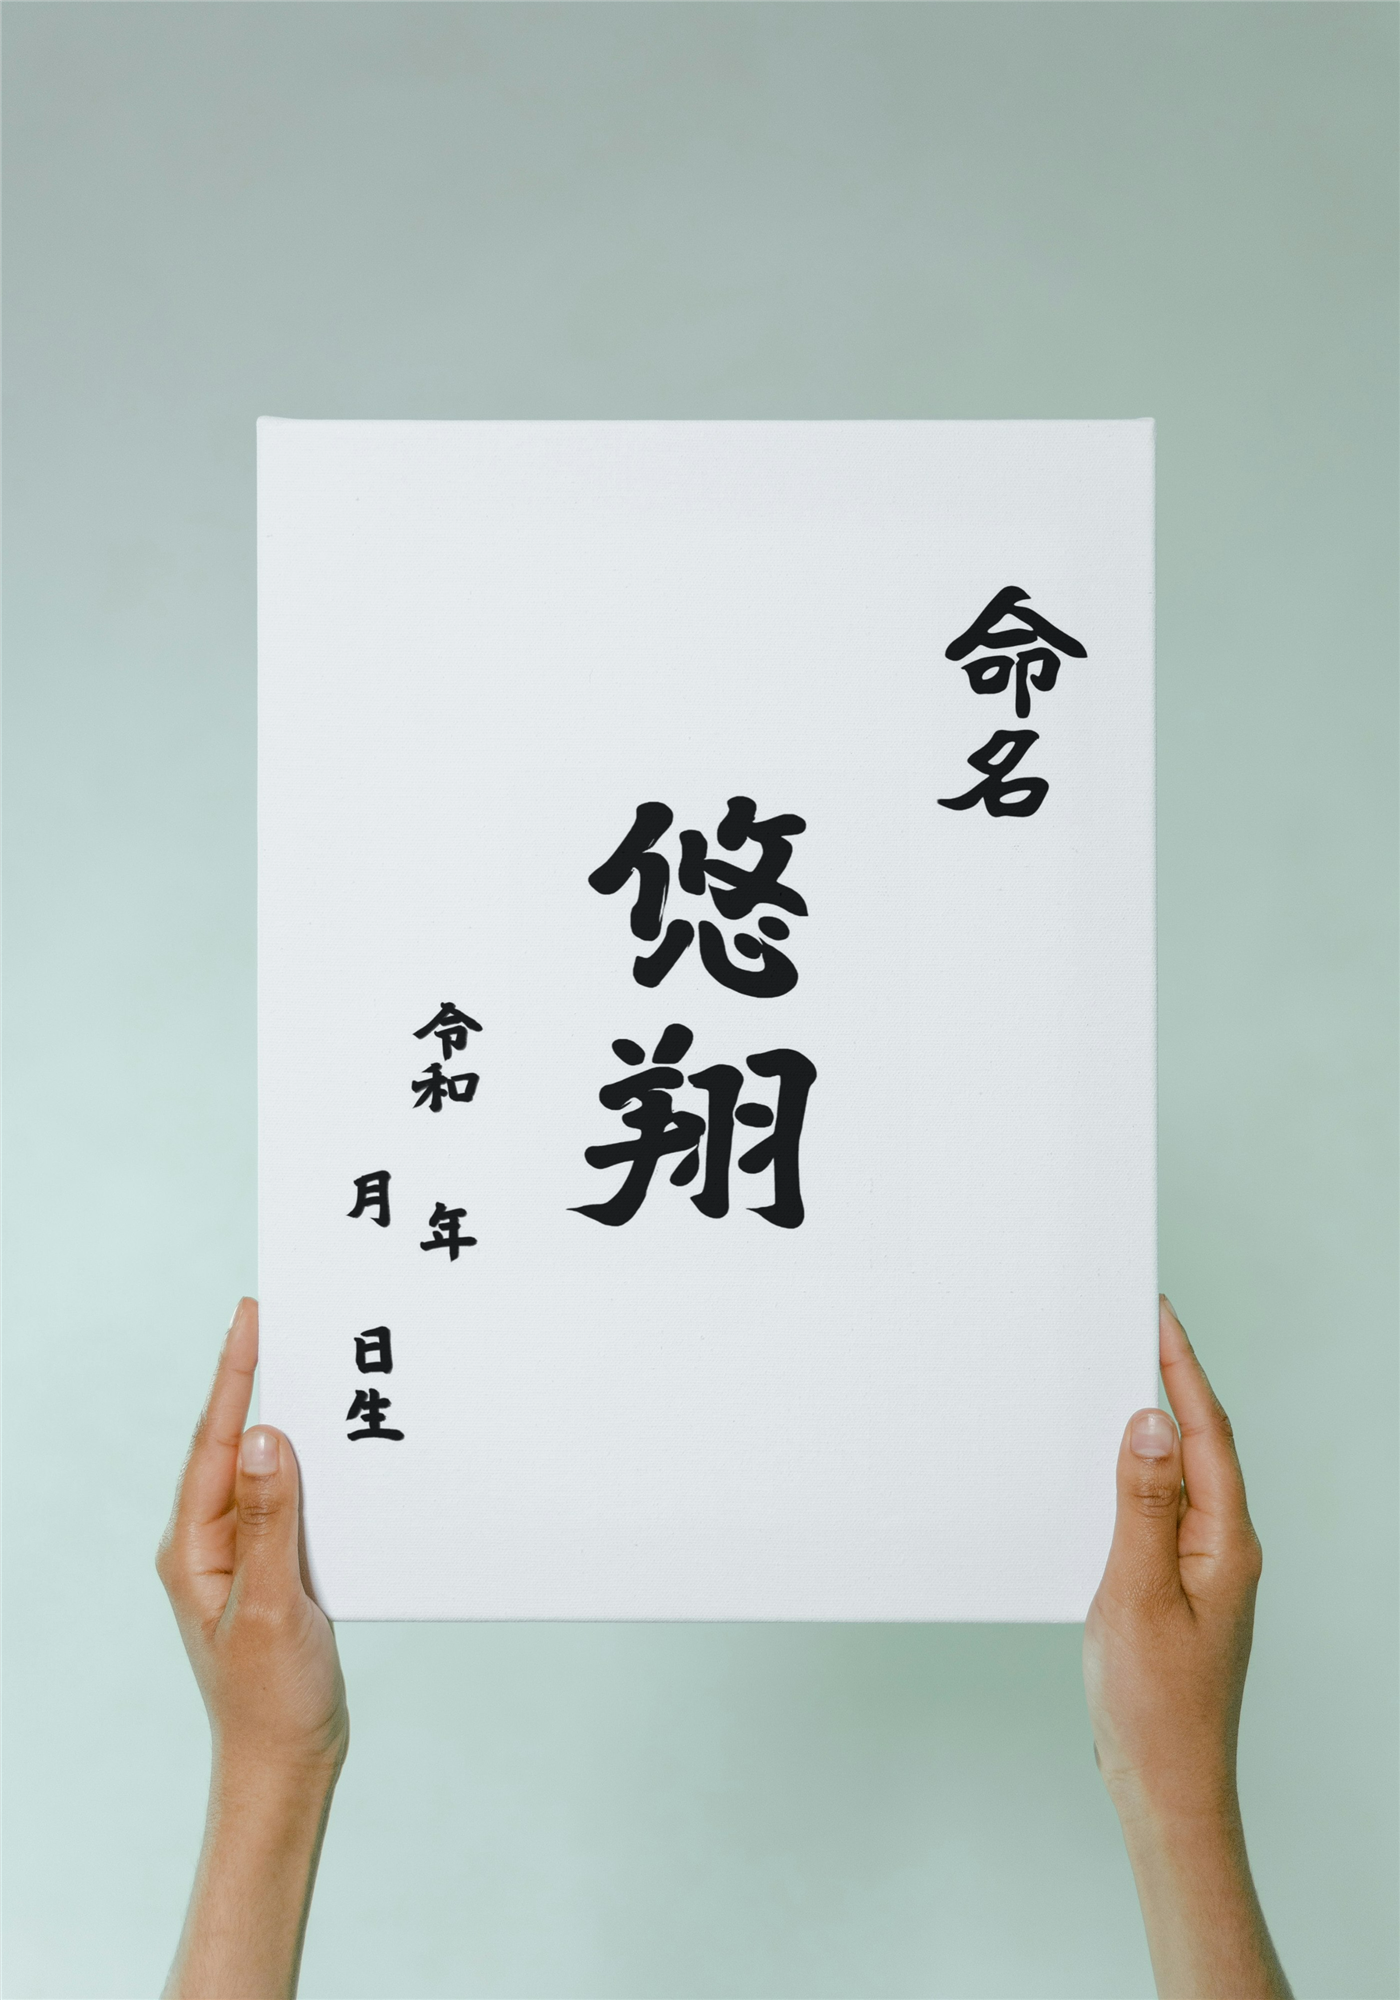 命名
悠翔
令和 年
月 日生